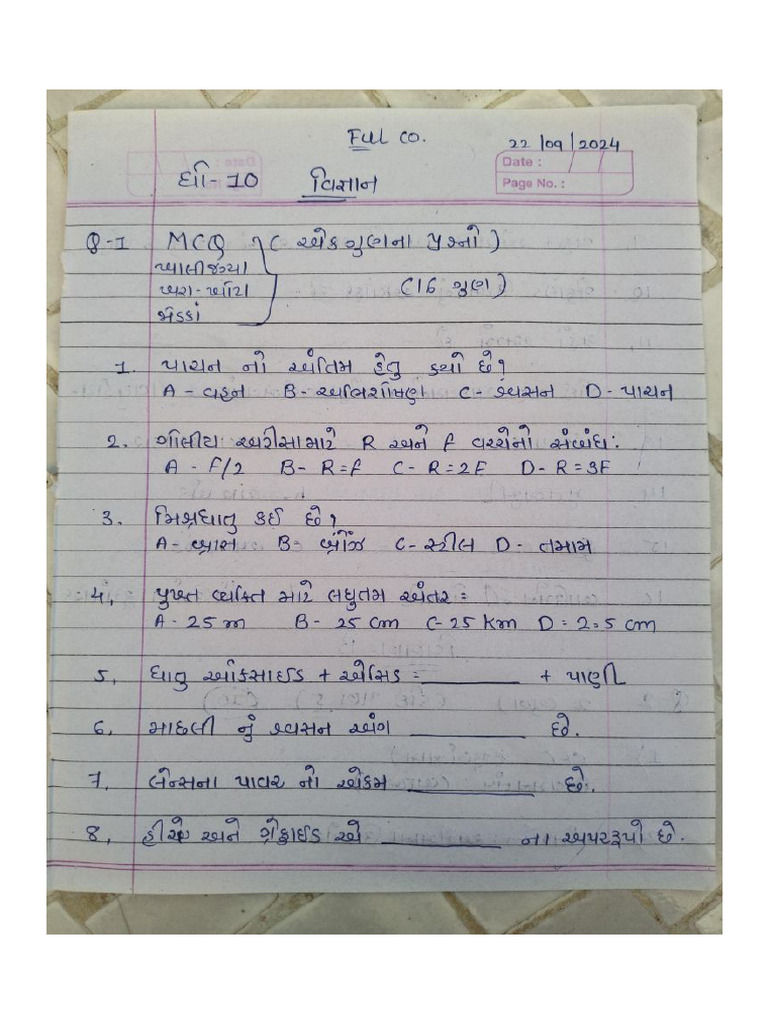 Full co.
22/09/2024
Date :
Page No. :
ધો-10 વિજ્ઞાન
Q-1 MCQ ( એક ગુણના પ્રશ્નો )
ખાલીજગ્યા
ખરા-ખોટા (16 ગુણ)
જોડકાં
1. પાચન નો અંતિમ હેતુ ક્યો છે?
A - વહન B - અભિશોષણ C - શ્વસન D - પાચન
2. ગોલીય અરીસા માટે R અને f વચ્ચેનો સંબંધ:
A - F/2 B- R=f C- R=2F D- R=3F
3. મિશ્રધાતુ કઈ છે?
A- બ્રાસ B= બ્રોંઝ C- સ્ટીલ D- તમામ
4, પુખ્ત વ્યક્તિ માટે લઘુતમ અંતર =
A - 25 m B - 25 cm C-25 Km D = 2=5 cm
5, ધાતુ ઓકસાઈડ + એસિડ = ________ + પાણી
6. માછલી નું શ્વસન અંગ ________ છે.
7. લેન્સના પાવર નો એકમ ________ છે.
8, હીરો અને ગ્રેફાઈડ એ ________ ના અપરરૂપો છે.